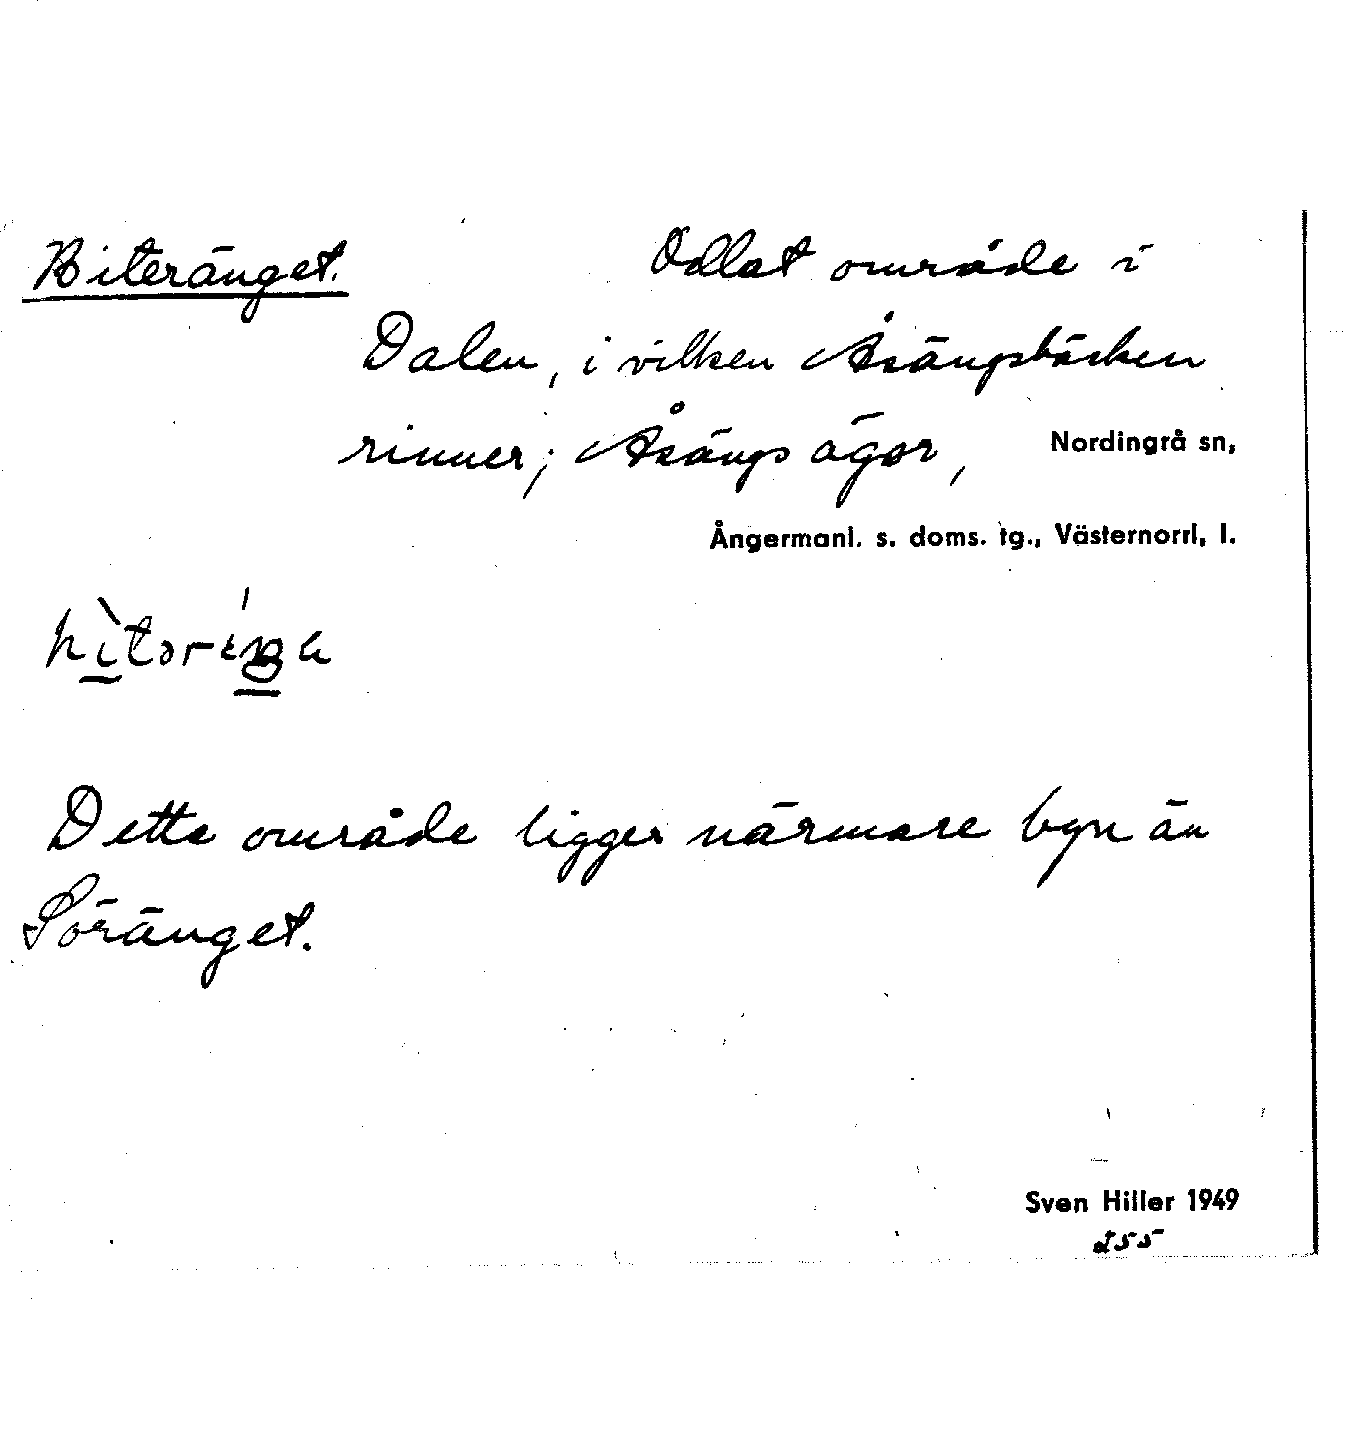 Biteränget. Odlat område i
Dalen, i vilken Åsängsbäcken
rinner; Åsängs ägor, Nordingrå sn,
Ångermanl. s. doms. tg., Västernorrl. l.
Detta område ligger närmare byn än
Söränget.
Sven Hiller 1949
255